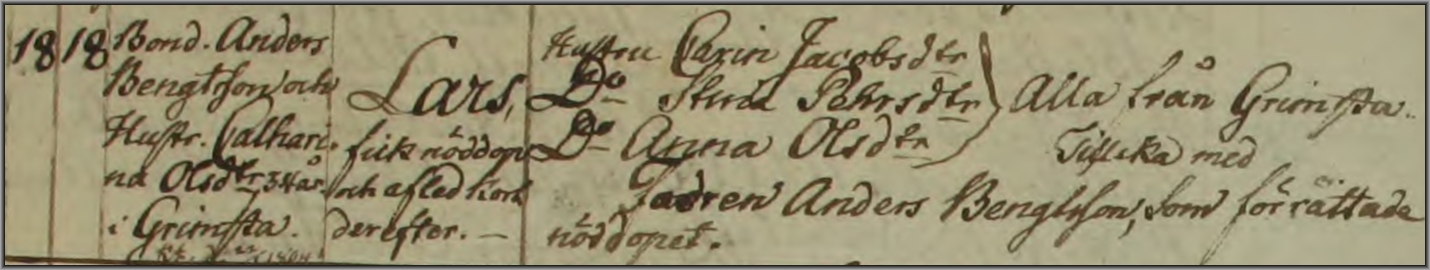 18 18 Bond. Anders
Bengtsson och
Hustr. Cathari-
na Olsdtr 34 år.
i Grimsta.
Lars,
fick nöddop
och afled kort
derefter. —
Hustru Carin Jacobsdtr
Do Stina Pehrsdtr
Do Anna Olsdtr
Alla från Grimsta.
Tillika med
Fadren Anders Bengtsson, som förrättade
nöddopet.